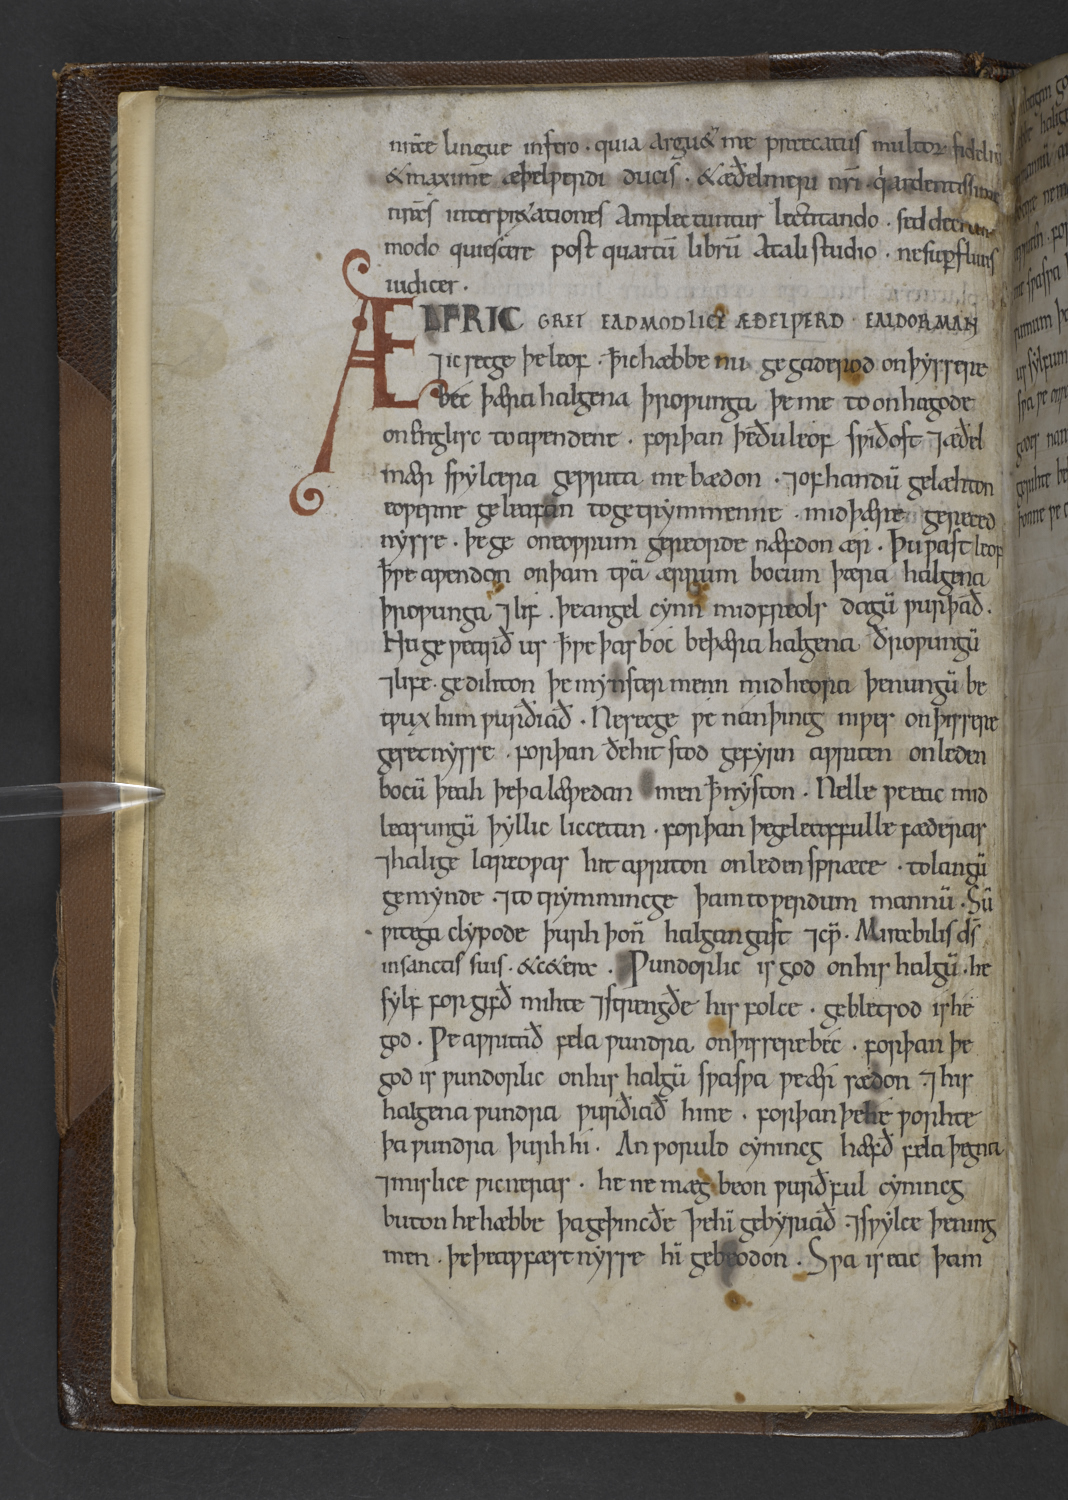 nr̄ae lingue infero · quia arguet me precatus multorum fidelium
& maxime æþelƿerdi ducis · & æðelmeri nr̄i · qui ardentissime
nr̄as interpretationes Amplectuntur lectitando · sed decreui
modo quiescere post quartū librū A tali studio · ne superfluus
iudicer ·
ÆLFRIC GRET EADMODLICE ÆÐELǷERD · EALDORMAN
⁊ ic secge þe leof · ꝥ ic hæbbe nu gegaderod on þyssere
béc þæra halgena þroƿunga þe me to onhagode
on englisc to aƿendene · forþan þe ðu leof sƿiðost ⁊ æðel
mær sƿylcera geƿrita me bædon · ⁊ of handū gelæhton
eoƿerne geleafan to getrymmenne · mid þære gerecced
nysse · þe ge on eoƿrum gereorde næfdon ær · Þu ƿast leof
ꝥ ƿe aƿendon on þam tƿā ærrum bocum þæra halgena
þroƿunga ⁊ lif · þe angel cynn mid freols dagū ƿurþað ·
Nu geƿearð us ꝥ ƿe þas boc be þæra halgena ðroƿungū
⁊ life · gedihton þe mynster menn mid heora þenungū be
tƿux him ƿurðiað · Ne secge ƿe nan þincg niƿes on þissere
gesetnysse · forþan ðe hit stod gefyrn aƿriten on leden
bocū þeah þe þa læƿedan men ꝥ nyston · Nelle ƿe eac mid
leasungū þyllic liccettan · forþan þe geleaffulle fæderas
⁊ halige lareoƿas hit aƿriton on leden spræce · to langū
gemynde · ⁊ to trymmincge þam toƿerdum mannū · Sū
ƿitega clypode þurh þon̄ halgan gast ⁊ cƿ̄ · Mirabilis ds̄
in sanctis suis · & cetera · Ƿundorlic is god on his halgū · he
sylf forgifð mihte ⁊ strengðe his folce · gebletsod is he
god · Ƿe aƿritað fela ƿundra on þissere béc · forþan þe
god is ƿundorlic on his halgū sƿa sƿa ƿe ær sædon ⁊ his
halgena ƿundra ƿurðiað hine · forþan þe he ƿorhte
þa ƿundra þurh hi · An ƿoruld cynincg hæfð fela þegna
⁊ mislice ƿicneras · he ne mæg beon ƿurðful cynincg
buton he hæbbe þa geþincðe þe hī gebyriað · ⁊ sƿylce þening
men · þe þeaƿfæstnysse hī gebeodon · Sƿa is eac þam